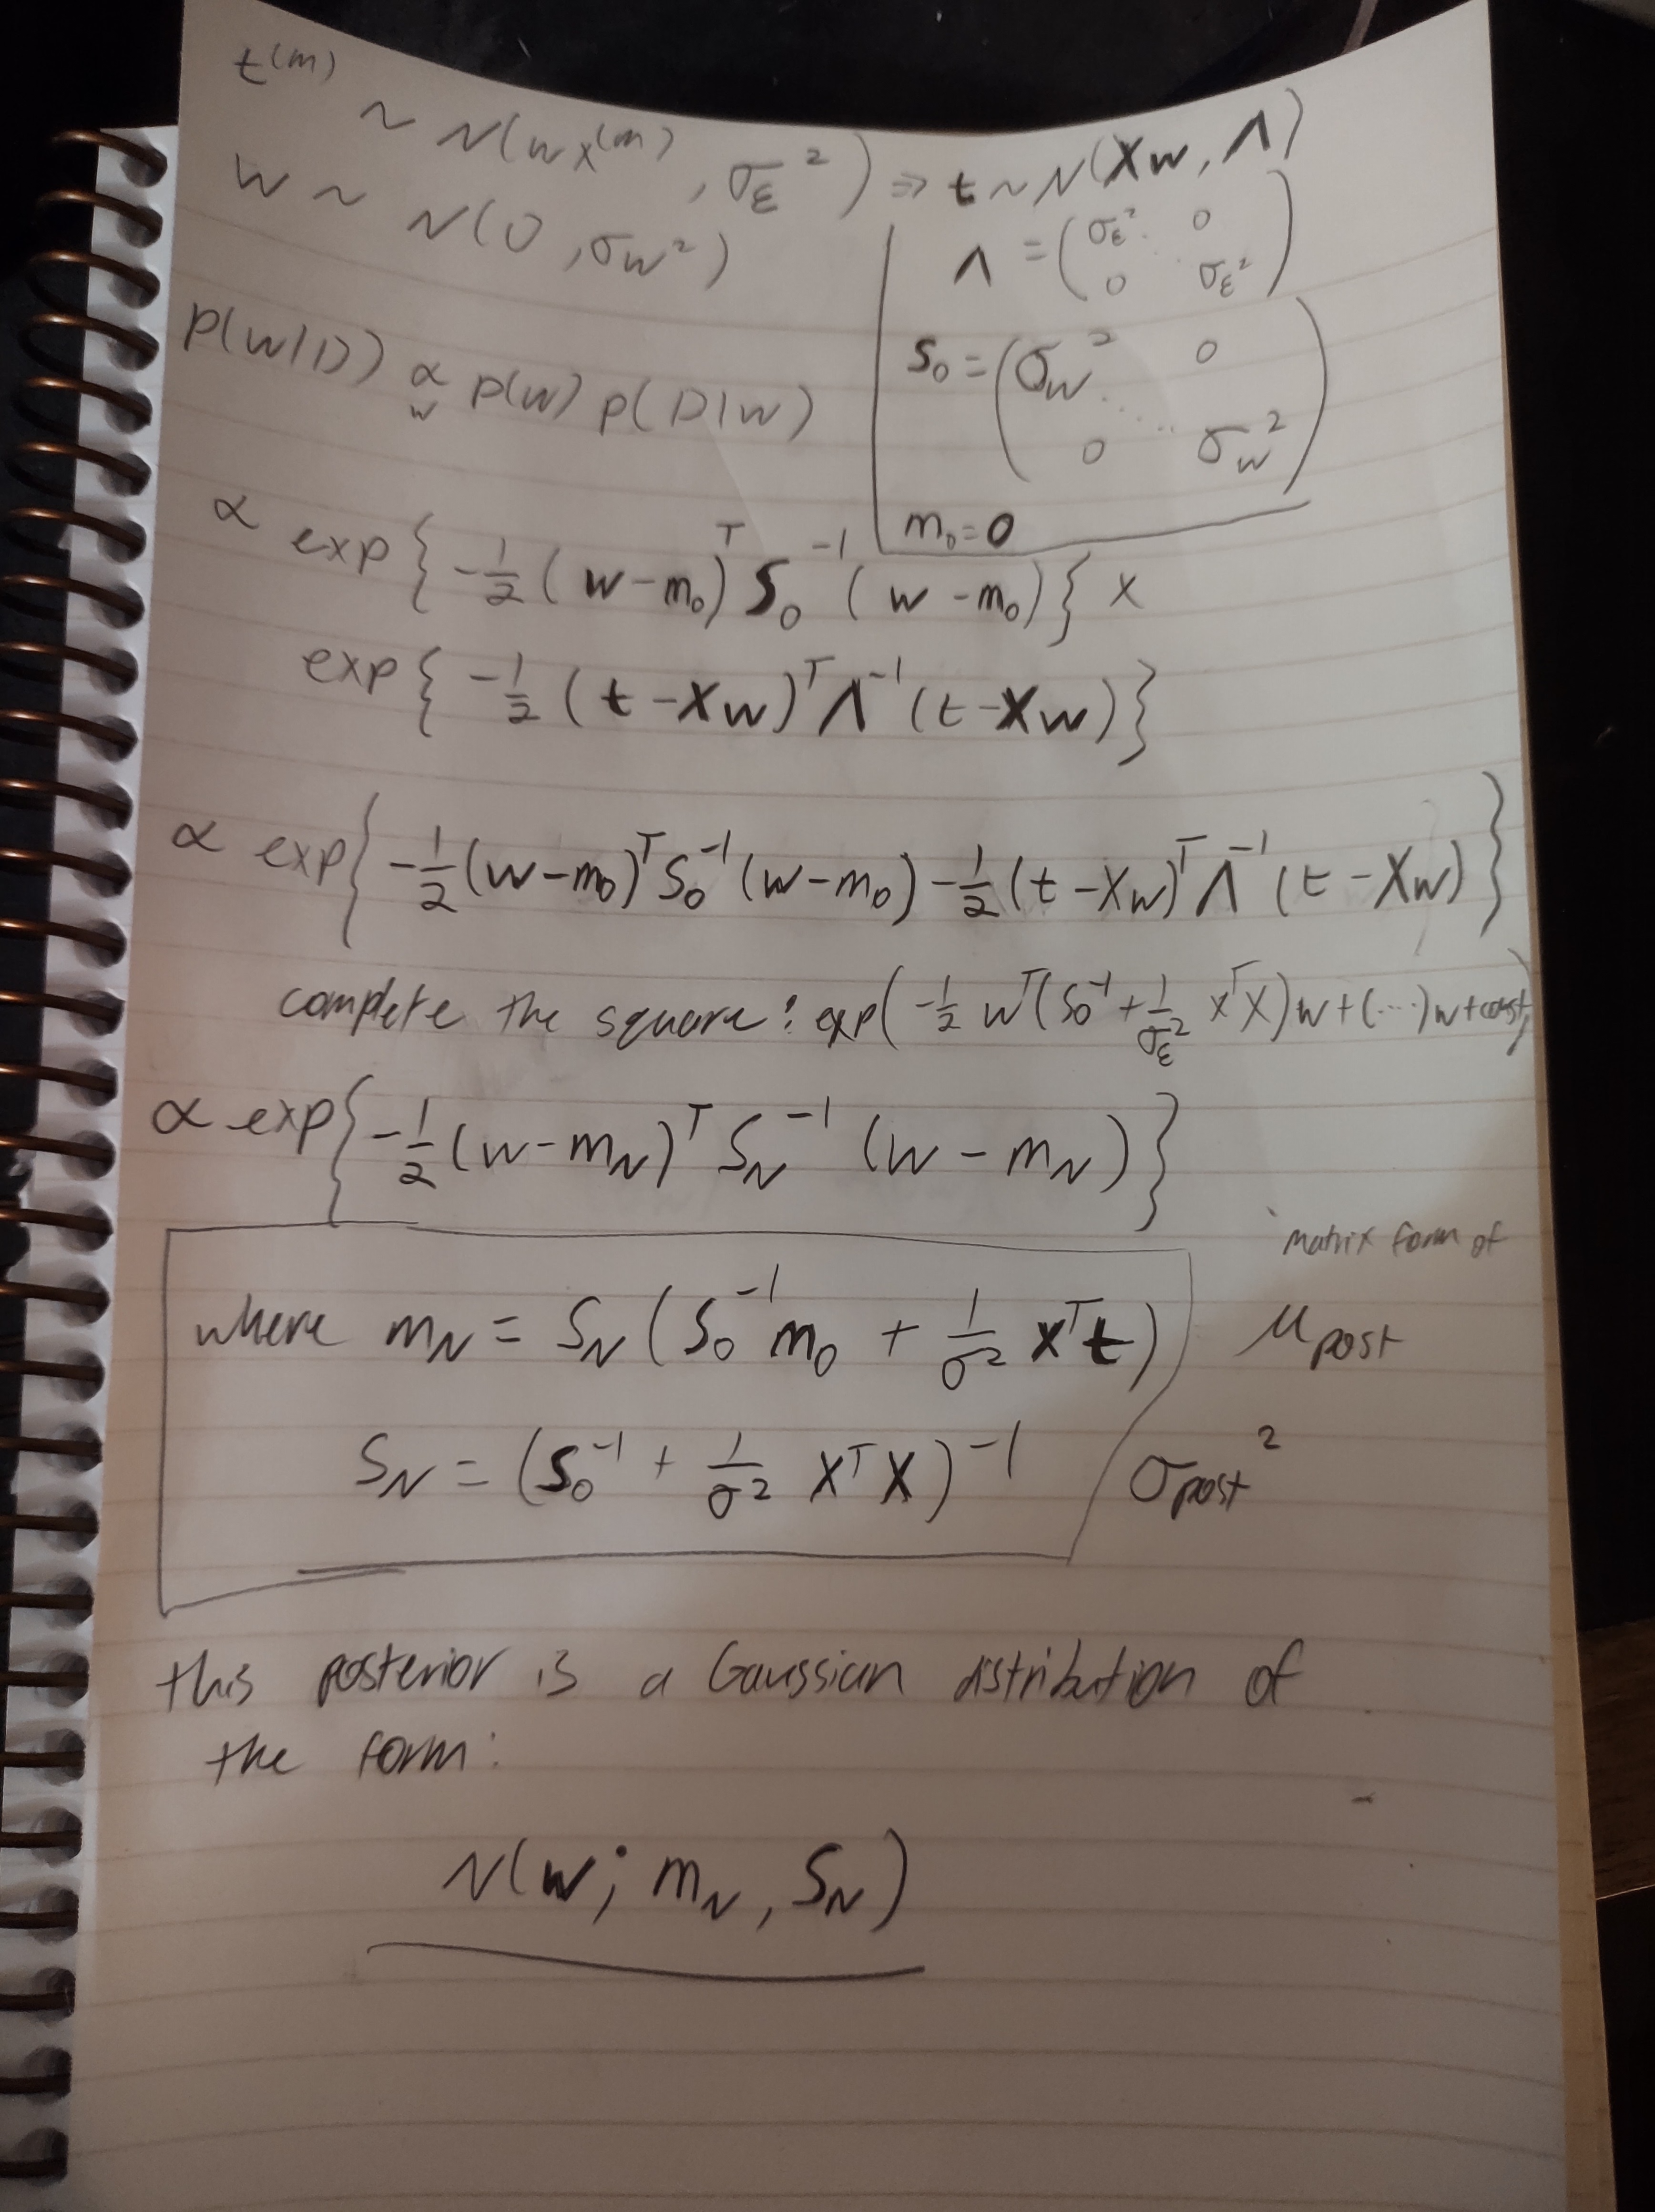 t^(m) ~ N(wx^(m), σ_ε²) ⇒ t ~ N(Xw, Λ)
w ~ N(0, σ_w²)
Λ = (σ_ε² ⋱ 0
0 σ_ε²)
S₀ = (σ_w² ⋱ 0
0 σ_w²)
m₀ = 0
p(w|D) ∝_w p(w) p(D|w)
∝ exp{-½(w-m₀)ᵀ S₀⁻¹ (w-m₀)} ×
exp{-½(t-Xw)ᵀ Λ⁻¹ (t-Xw)}
∝ exp{-½(w-m₀)ᵀ S₀⁻¹ (w-m₀) - ½(t-Xw)ᵀ Λ⁻¹ (t-Xw)}
complete the square: exp(-½ wᵀ(S₀⁻¹ + 1/σ_ε² XᵀX)w + (...)w + const)
∝ exp{-½(w-m_N)ᵀ S_N⁻¹ (w-m_N)}
Matrix form of
where m_N = S_N (S₀⁻¹ m₀ + 1/σ² Xᵀt) μ_post
S_N = (S₀⁻¹ + 1/σ² XᵀX)⁻¹ σ_post²
this posterior is a Gaussian distribution of
the form:
N(w; m_N, S_N)